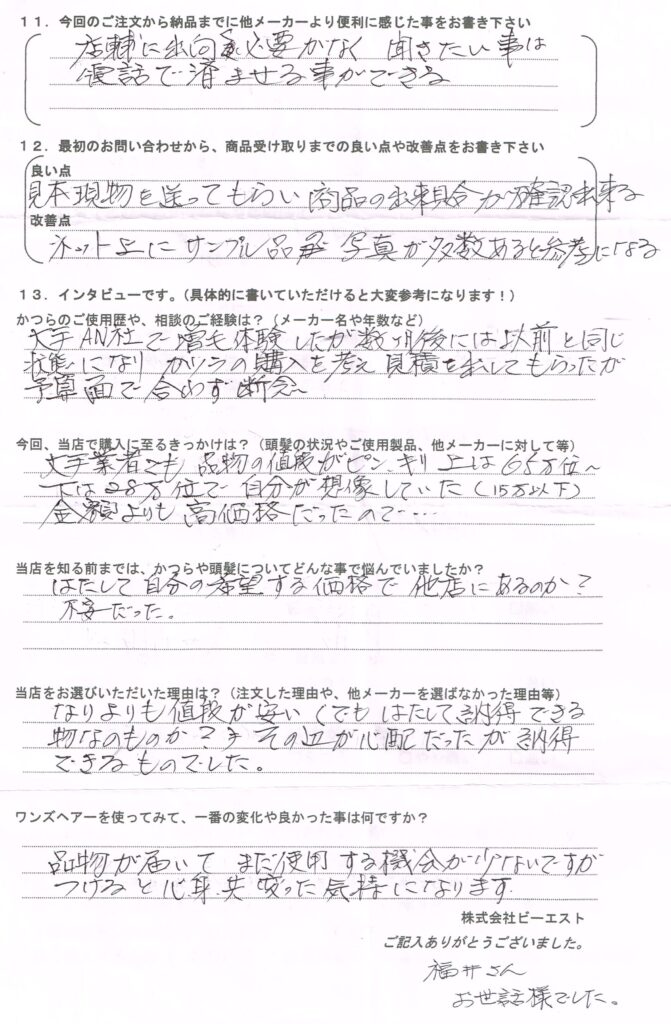 １１．今回のご注文から納品までに他メーカーより便利に感じた事をお書き下さい
店舗に出向く必要がなく 聞きたい事は
電話で済ませる事ができる
１２．最初のお問い合わせから、商品受け取りまでの良い点や改善点をお書き下さい
良い点
見本現物を送ってもらい 商品の出来具合が確認出来る
改善点
ネット上にサンプル品 写真が多数あると参考になる
１３．インタビューです。（具体的に書いていただけると大変参考になります！）
かつらのご使用歴や、相談のご経験は？（メーカー名や年数など）
大手AN社で増毛体験したが数ヶ月後には以前と同じ
状態になり カツラの購入を考え 見積を出してもらったが
予算面で合わず断念～
今回、当店で購入に至るきっかけは？（頭髪の状況やご使用製品、他メーカーに対して等）
大手業者でも 品物の値段がピンキリ上は65万位～
下は28万位で 自分が想像していた（15万以下）
金額よりも高価格だったので‥‥
当店を知る前までは、かつらや頭髪についてどんな事で悩んでいましたか？
はたして自分の希望する価格で 他店にあるのか？
不安だった。
当店をお選びいただいた理由は？（注文した理由や、他メーカーを選ばなかった理由等）
なりよりも値段が安い（でも はたして納得できる
物なのものか？） その辺が心配だったが納得
できるものでした。
ワンズヘアーを使ってみて、一番の変化や良かった事は何ですか？
品物が届いて まだ使用する機会が少ないですが
つけると心身共変った気持になります
株式会社ビーエスト
ご記入ありがとうございました。
福井さん
お世話様でした。